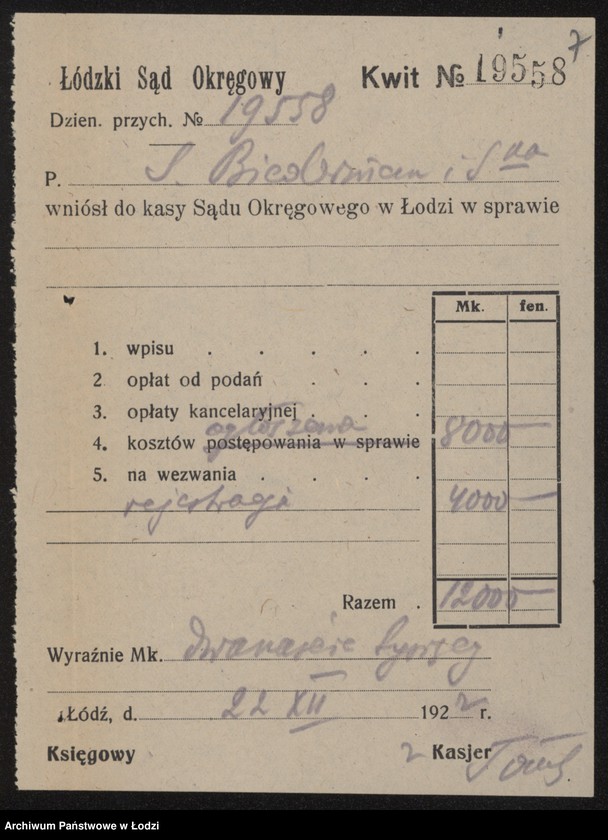 7
Łódzki Sąd Okręgowy Kwit № 19558
Dzien. przych. № 19558
P. S. Biederman i S-na
wniósł do kasy Sądu Okręgowego w Łodzi w sprawie
Mk. fen.
1. wpisu . . . . .
2 opłat od podań . . .
3. opłaty kancelaryjnej . . .
ogłoszenia
4. kosztów postępowania w sprawie 8000 —
5. na wezwania . . . . .
rejestracji 4000 —
Razem . 12000 —
Wyraźnie Mk. dwanaście tysięcy
Łódź, d. 22 XII 1922 r.
Księgowy Kasjer